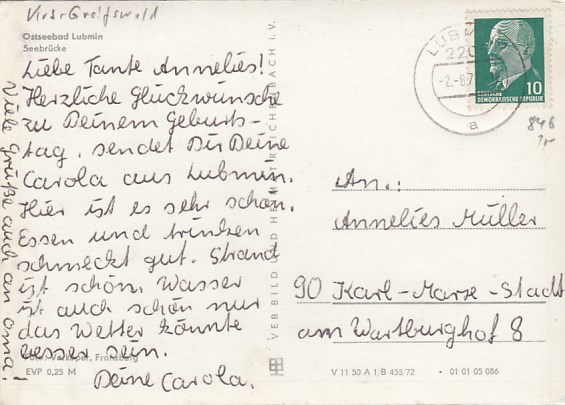 Kr. Greifswald
Ostseebad Lubmin
Seebrücke
Liebe Tante Annelies!
Herzliche Glückwünsche
zu Deinem Geburts-
tag, sendet Dir Deine
Carola aus Lubmin.
Hier ist es sehr schön.
Essen und trinken
schmeckt gut. Strand
ist schön, Wasser
ist auch schön nur
das Wetter könnte
besser sein.
Deine Carola.
Viele Grüße auch an Oma!
EVP 0,25 M
VEB BILD UND HEIMAT REICHENBACH I. V.
V 11 50 A 1/B 458/72 • 01 01 05 086
LUBMIN
220
-2.-8.7
a
10
DEUTSCHE DEMOKRATISCHE REPUBLIK
846
An.:
Annelies Müller
90 Karl-Marx-Stadt
am Wartburghof 8